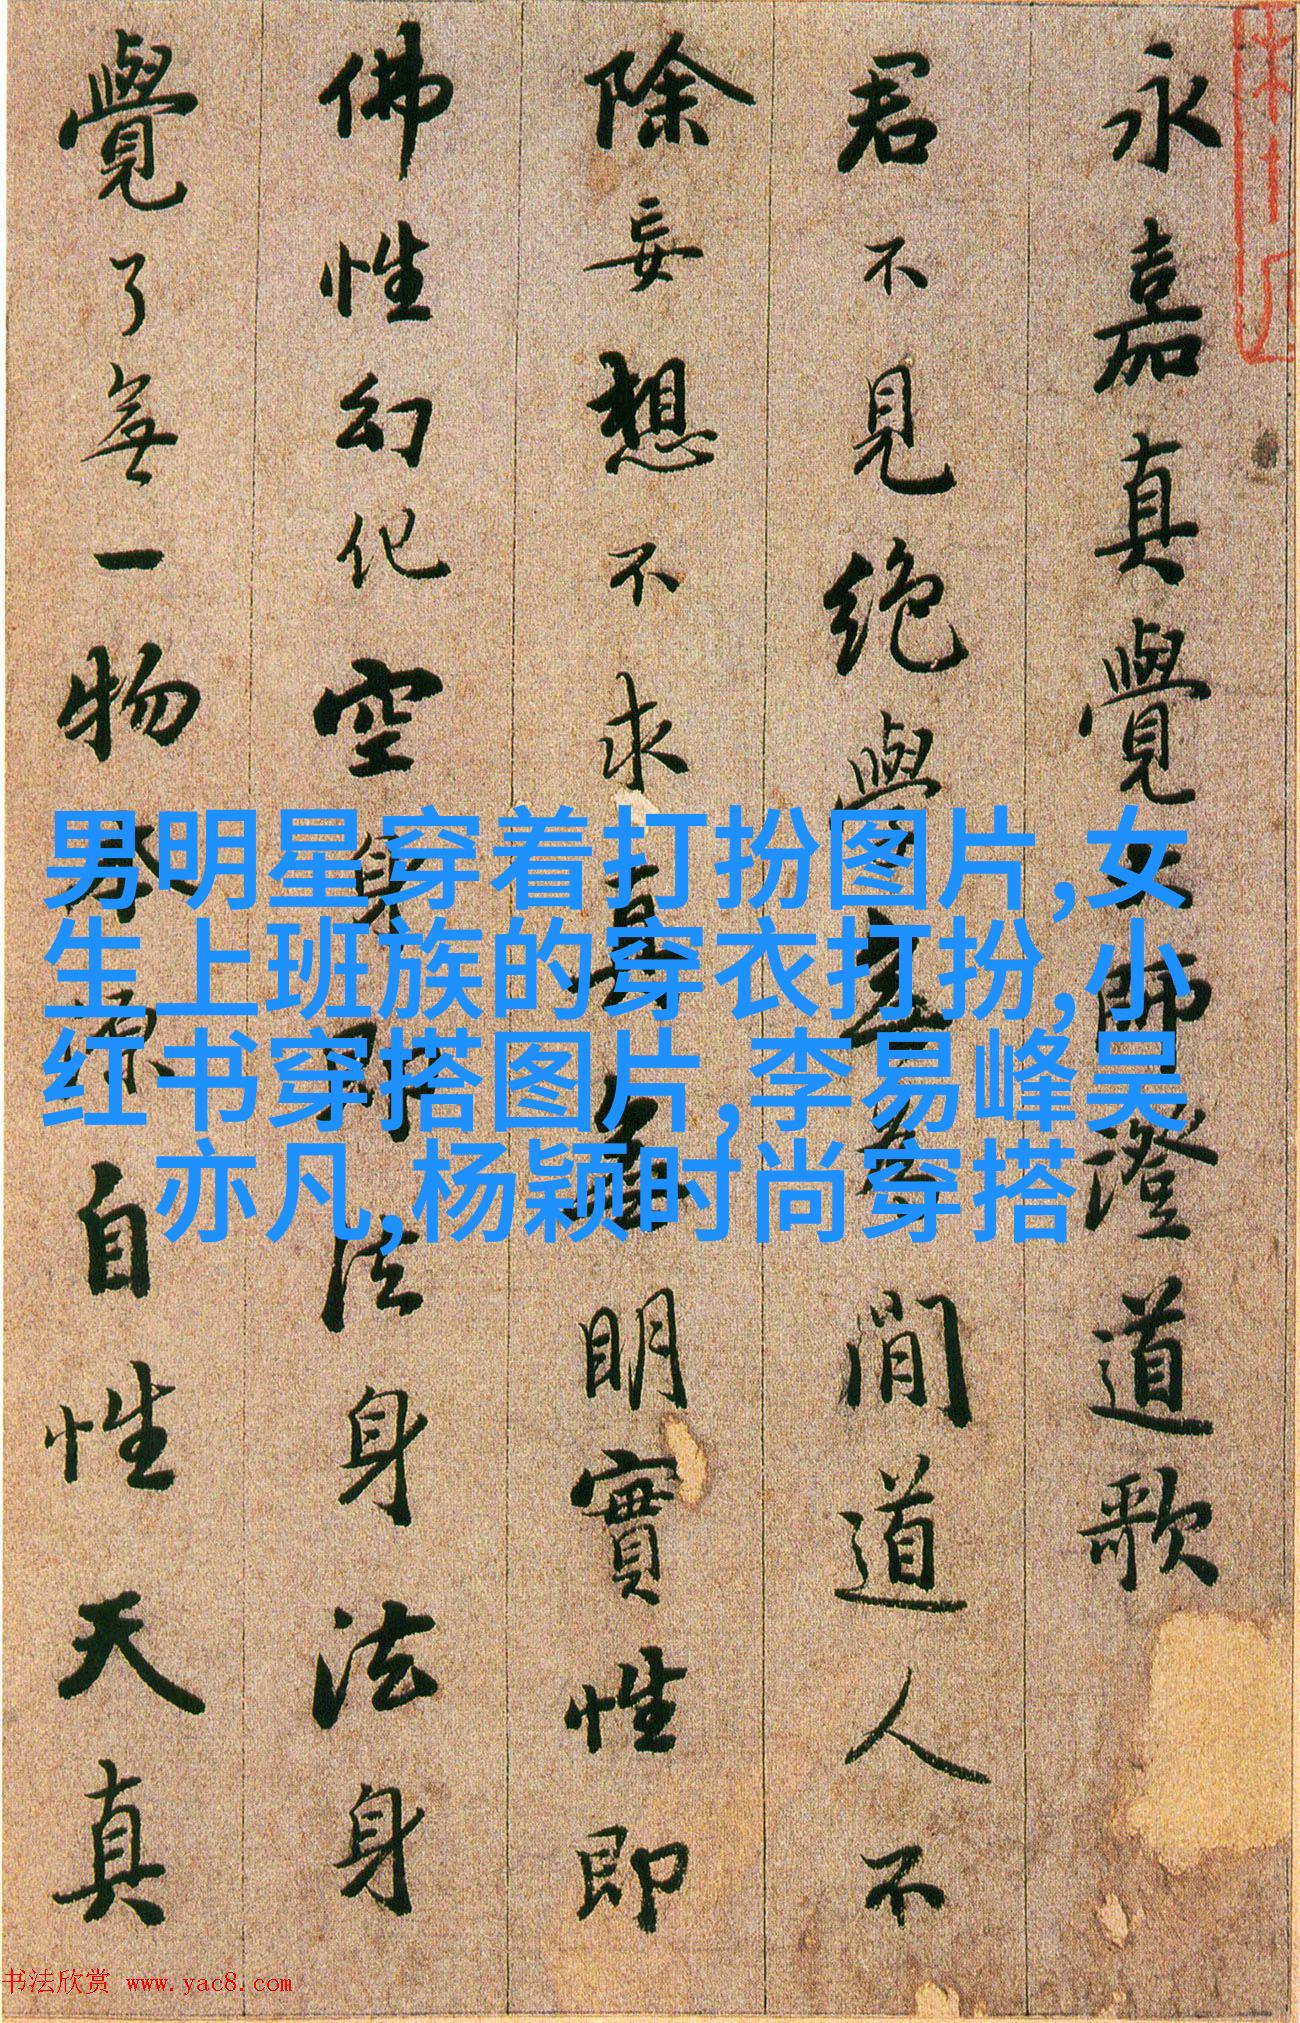 永嘉真覺大師澄道歌
君不見絕學無為閒道人不
除妄想不求真無明實性即
佛性幻化空身即法身法身
覺了無一物本源自性天真
男明星穿着打扮图片,女
生上班族的穿衣打扮,小
红书穿搭图片,李易峰吴
亦凡,杨颖时尚穿搭
书法欣赏 www.yac8.com